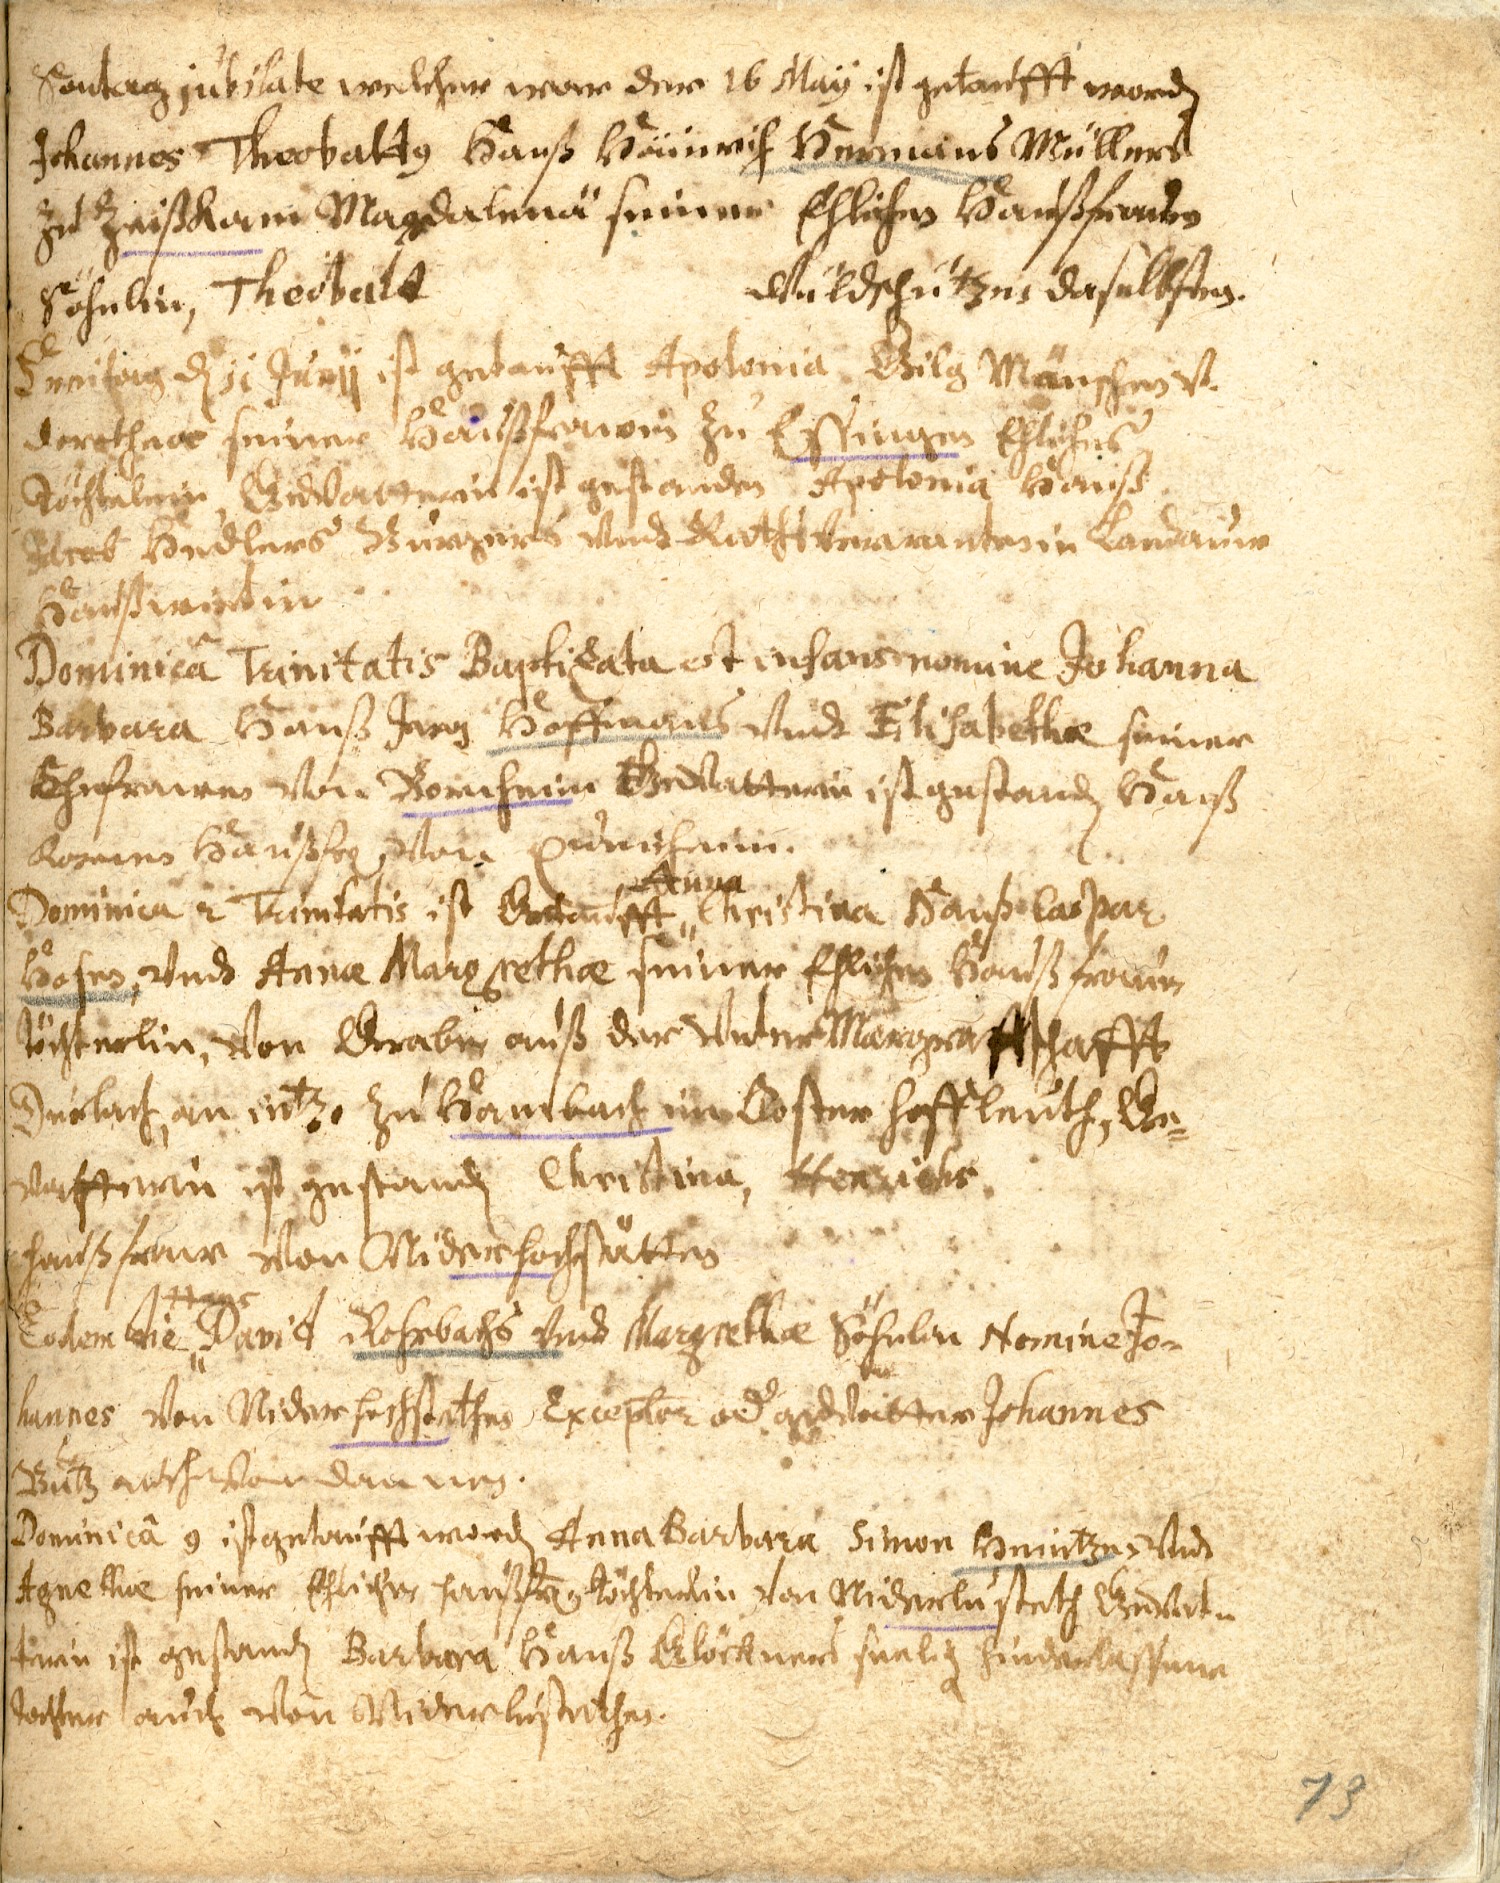 Sontag jubilate welcher war der 16 Maÿ ist getaufft word
Johannes Theobaldus Hanß Heinrich Hermans Müllers
zu Zeißkam Magdalena seiner Ehlichen Haußfrawen
Söhnlin, Theobalt Wildschützen daselbsten.
Freitag d 11 Junij ist getaufft Apolonia Gilg Mänschen v.
dorotheae seiner Haußfrawen zu Essingen Ehlichs
Töchterlein, Gevatterin ist gestanden Apolonia Hanß
Jacob Hedlers Burgers vnd Rathsverwanten in Landauw
Haußwirtin
Dominicâ Trinitatis Baptizata est infans nomine Johanna
Barbara Hanß Jerg Hoffmans vnd Elisabethae seiner
Ehefrawen von Bornheim Gevatterin ist gestand Hanß
Haußfr von
Dominica 2 Trinitatis ist Getaufft Anna Christina Hanß Caspar
Hosen, vnd Annae Margrethae seiner Ehlichen Haußfrawen
töchterlin, von Graben auß der vnter Marggraffschafft
Durlach, an ietzo zu Haimbach im Closter hoffleuth, Ge-
vatterin ist gestand Christina, Henrichs
haußfraw von Niderhochstätten
Eodem die Hans David Rohrbachs vnd Margrethae Söhnlin Nomine Jo-
hannes von Niderhochstethen, Exceptor od gevatter Johannes
Butz auch von dannen.
Dominicâ 9 ist getaufft word Anna Barbara Simon Heintzen vnd
Agnethae seiner Ehlichen haußfr töchterlin von Niderlusteth Gevat-
terin ist gestand Barbara Hanß Glöckners seelig hinderlassene
tochter auch von Niderlustethen.